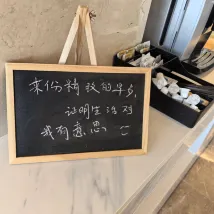 来份精致的早多,
证明生活对
我有意思